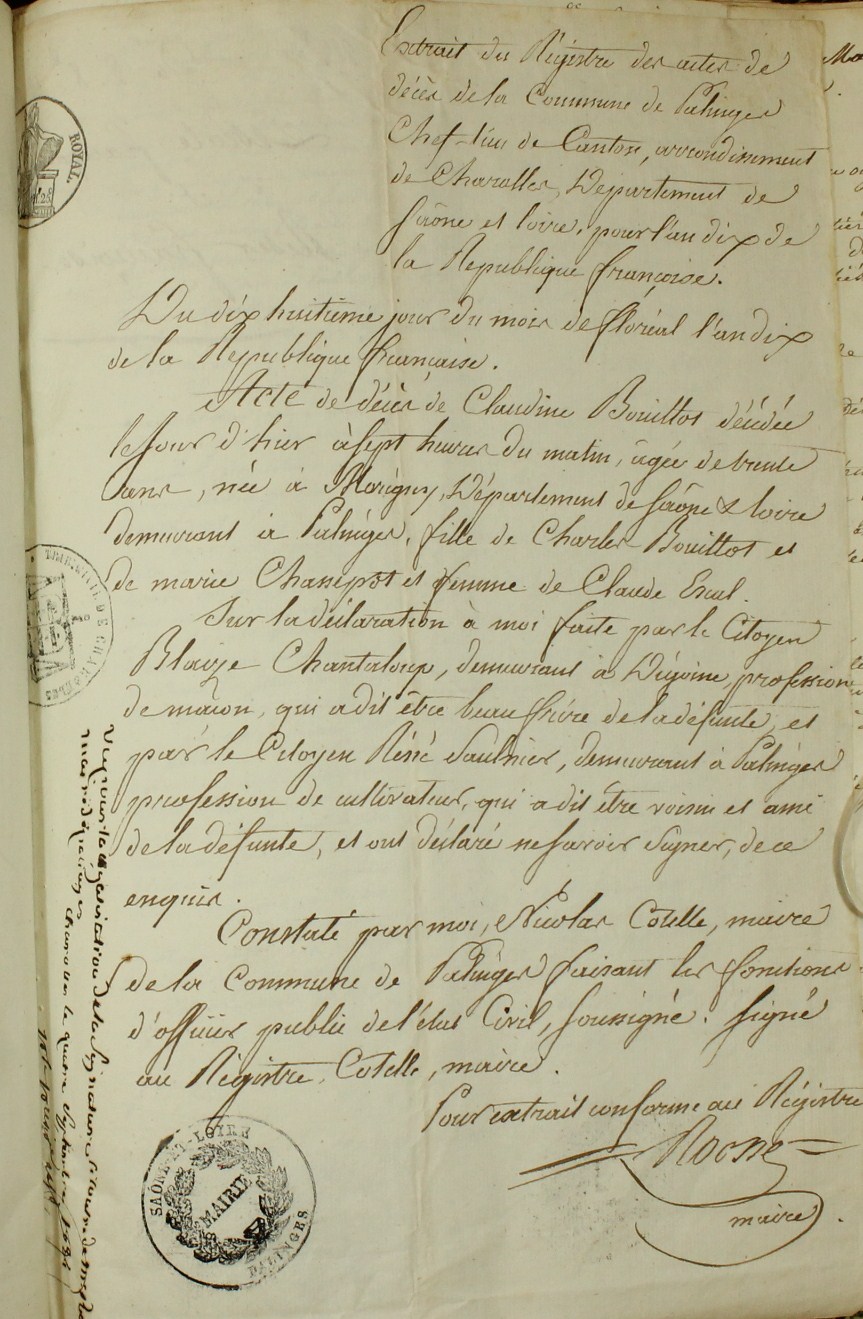 Extrait du Régistre des actes de
décès de la Commune de Palinges
Chef-lieu de Canton, arrondissement
de Charolles, Département de
Saône et Loire, pour l'an dix de
la République françoise.
Du dix huitième jour du mois de floréal l'an dix
de la République française.
Acte de décès de Claudine Bouillot décédée
le jour d'hier à sept heures du matin, âgée de trente
ans, née à Marigny, Département de Saône & Loire
demeurant à Palinges, fille de Charles Bouillot et
de marie Chassepot et femme de Claude
Sur la déclaration à moi faite par le Citoyen
Blaize Chantaloup, demeurant à Digoine, profession
de maçon, qui a dit être beau frère de la défunte, et
par le Citoyen Réné Saulnier, demeurant à Palinges
profession de cultivateur, qui a dit être voisin et ami
de la défunte, et ont déclaré ne savoir signer, de ce
enquis.
Constaté par moi, Nicolas Cotelle, maire
de la Commune de Palinges faisant les fonctions
d'officier public de l'état Civil, soussigné. Signé
au Régistre, Cotelle, maire.
Pour extrait conforme au Régistre
maire
ROYAL.
SAÔNE-ET-LOIRE
MAIRIE
PALINGES
Vu pour la légalisation de la signature
maire de palinges
Charolles le quatre Septembre